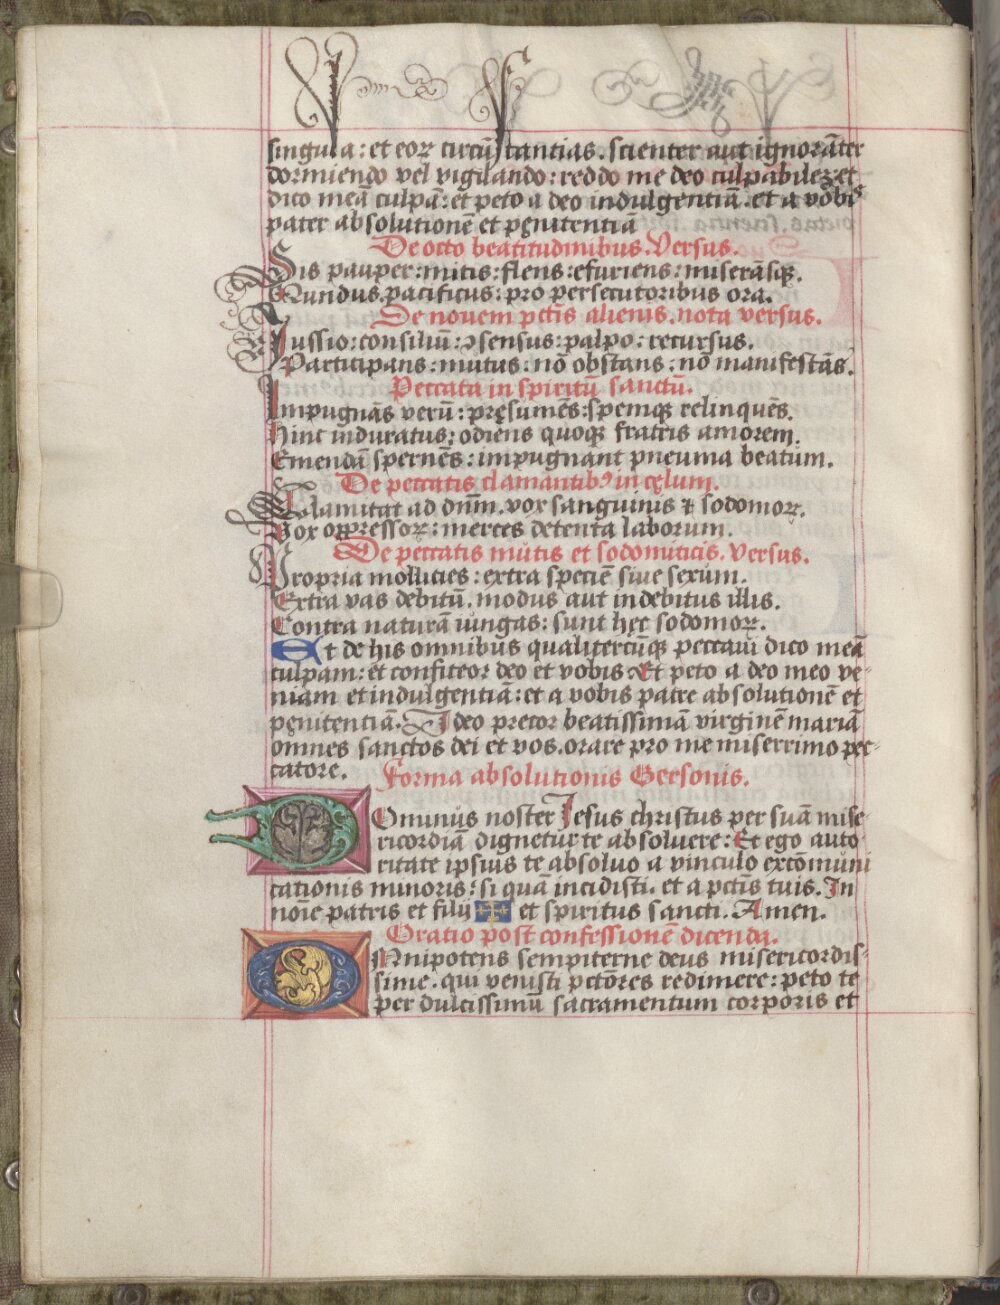 singula : et eoꝝ circūstantias . scienter aut ignorāter
dormiendo vel vigilando : reddo me deo culpabileꝫ : et
dico meā culpā : et peto a deo indulgentiā . et a vobis
pater absolutionē et pęnitentiā
De octo beatitudinibus . Versus .
Sis pauper : mitis : flens : esuriens : miserāsqꝫ .
Mundus . pacificus : pro persecutoribus ora .
De novem pctis alienis . nota versus .
Iussio : consiliū : ↄsensus : palpo : recursus .
Participans : mutus : nō obstans : nō manifestās .
Peccata in spiritū sanctū .
Impugnās verū : pręsumēs : spemqꝫ relinquēs .
Hinc induratus : odiens quoqꝫ fratris amorem .
Emendā spernēs : impugnant pneuma beatum .
De peccatis clamantibꝰ in cęlum .
Clamitat ad dnm̄ . vox sanguinis ⁊ sodomoꝝ .
Vox oppressoꝝ : merces detenta laborum .
De peccatis mutis et sodomiticis . Versus .
Propria mollities : extra speciē sive sexum .
Extra vas debitū . modus aut indebitus illis .
Contra naturā iūngas : sunt hęc sodomoꝝ .
Et de his omnibus qualitercūqꝫ peccavi dico meā
culpam : et confiteor deo et vobis . Et peto a deo meo ve-
niam et indulgentiā : et a vobis patre absolutionē et
pęnitentiā . Ideo precor beatissimā virginē mariā
omnes sanctos dei et vos . orare pro me miserrimo pec-
catore .
Forma absolutionis Gersonis .
Dominus noster Jesus christus per suā mise-
ricordiā dignetur te absolvere : Et ego auto-
ritate ipsius te absolvo a vinculo excōmuni
cationis minoris : si quā incidisti . et a pctis tuis . In
noīe patris et filij ✠ et spiritus sancti . Amen .
Oratio post confessionē dicenda .
Omnipotens sempiterne deus misericordis-
sime . qui venisti pctōres redimere : peto te
per dulcissimū sacramentum corporis et